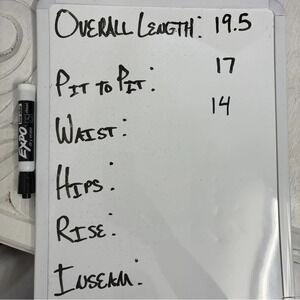 OVERALL LENGTH: 19.5
PIT TO PIT: 17
WAIST: 14
HIPS:
RISE:
INSEAM:
EXPO